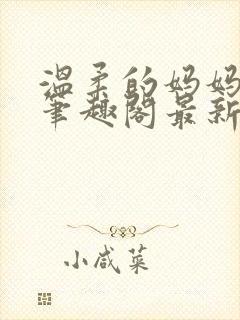 温柔的妈妈
笔趣阁最新
小咸菜